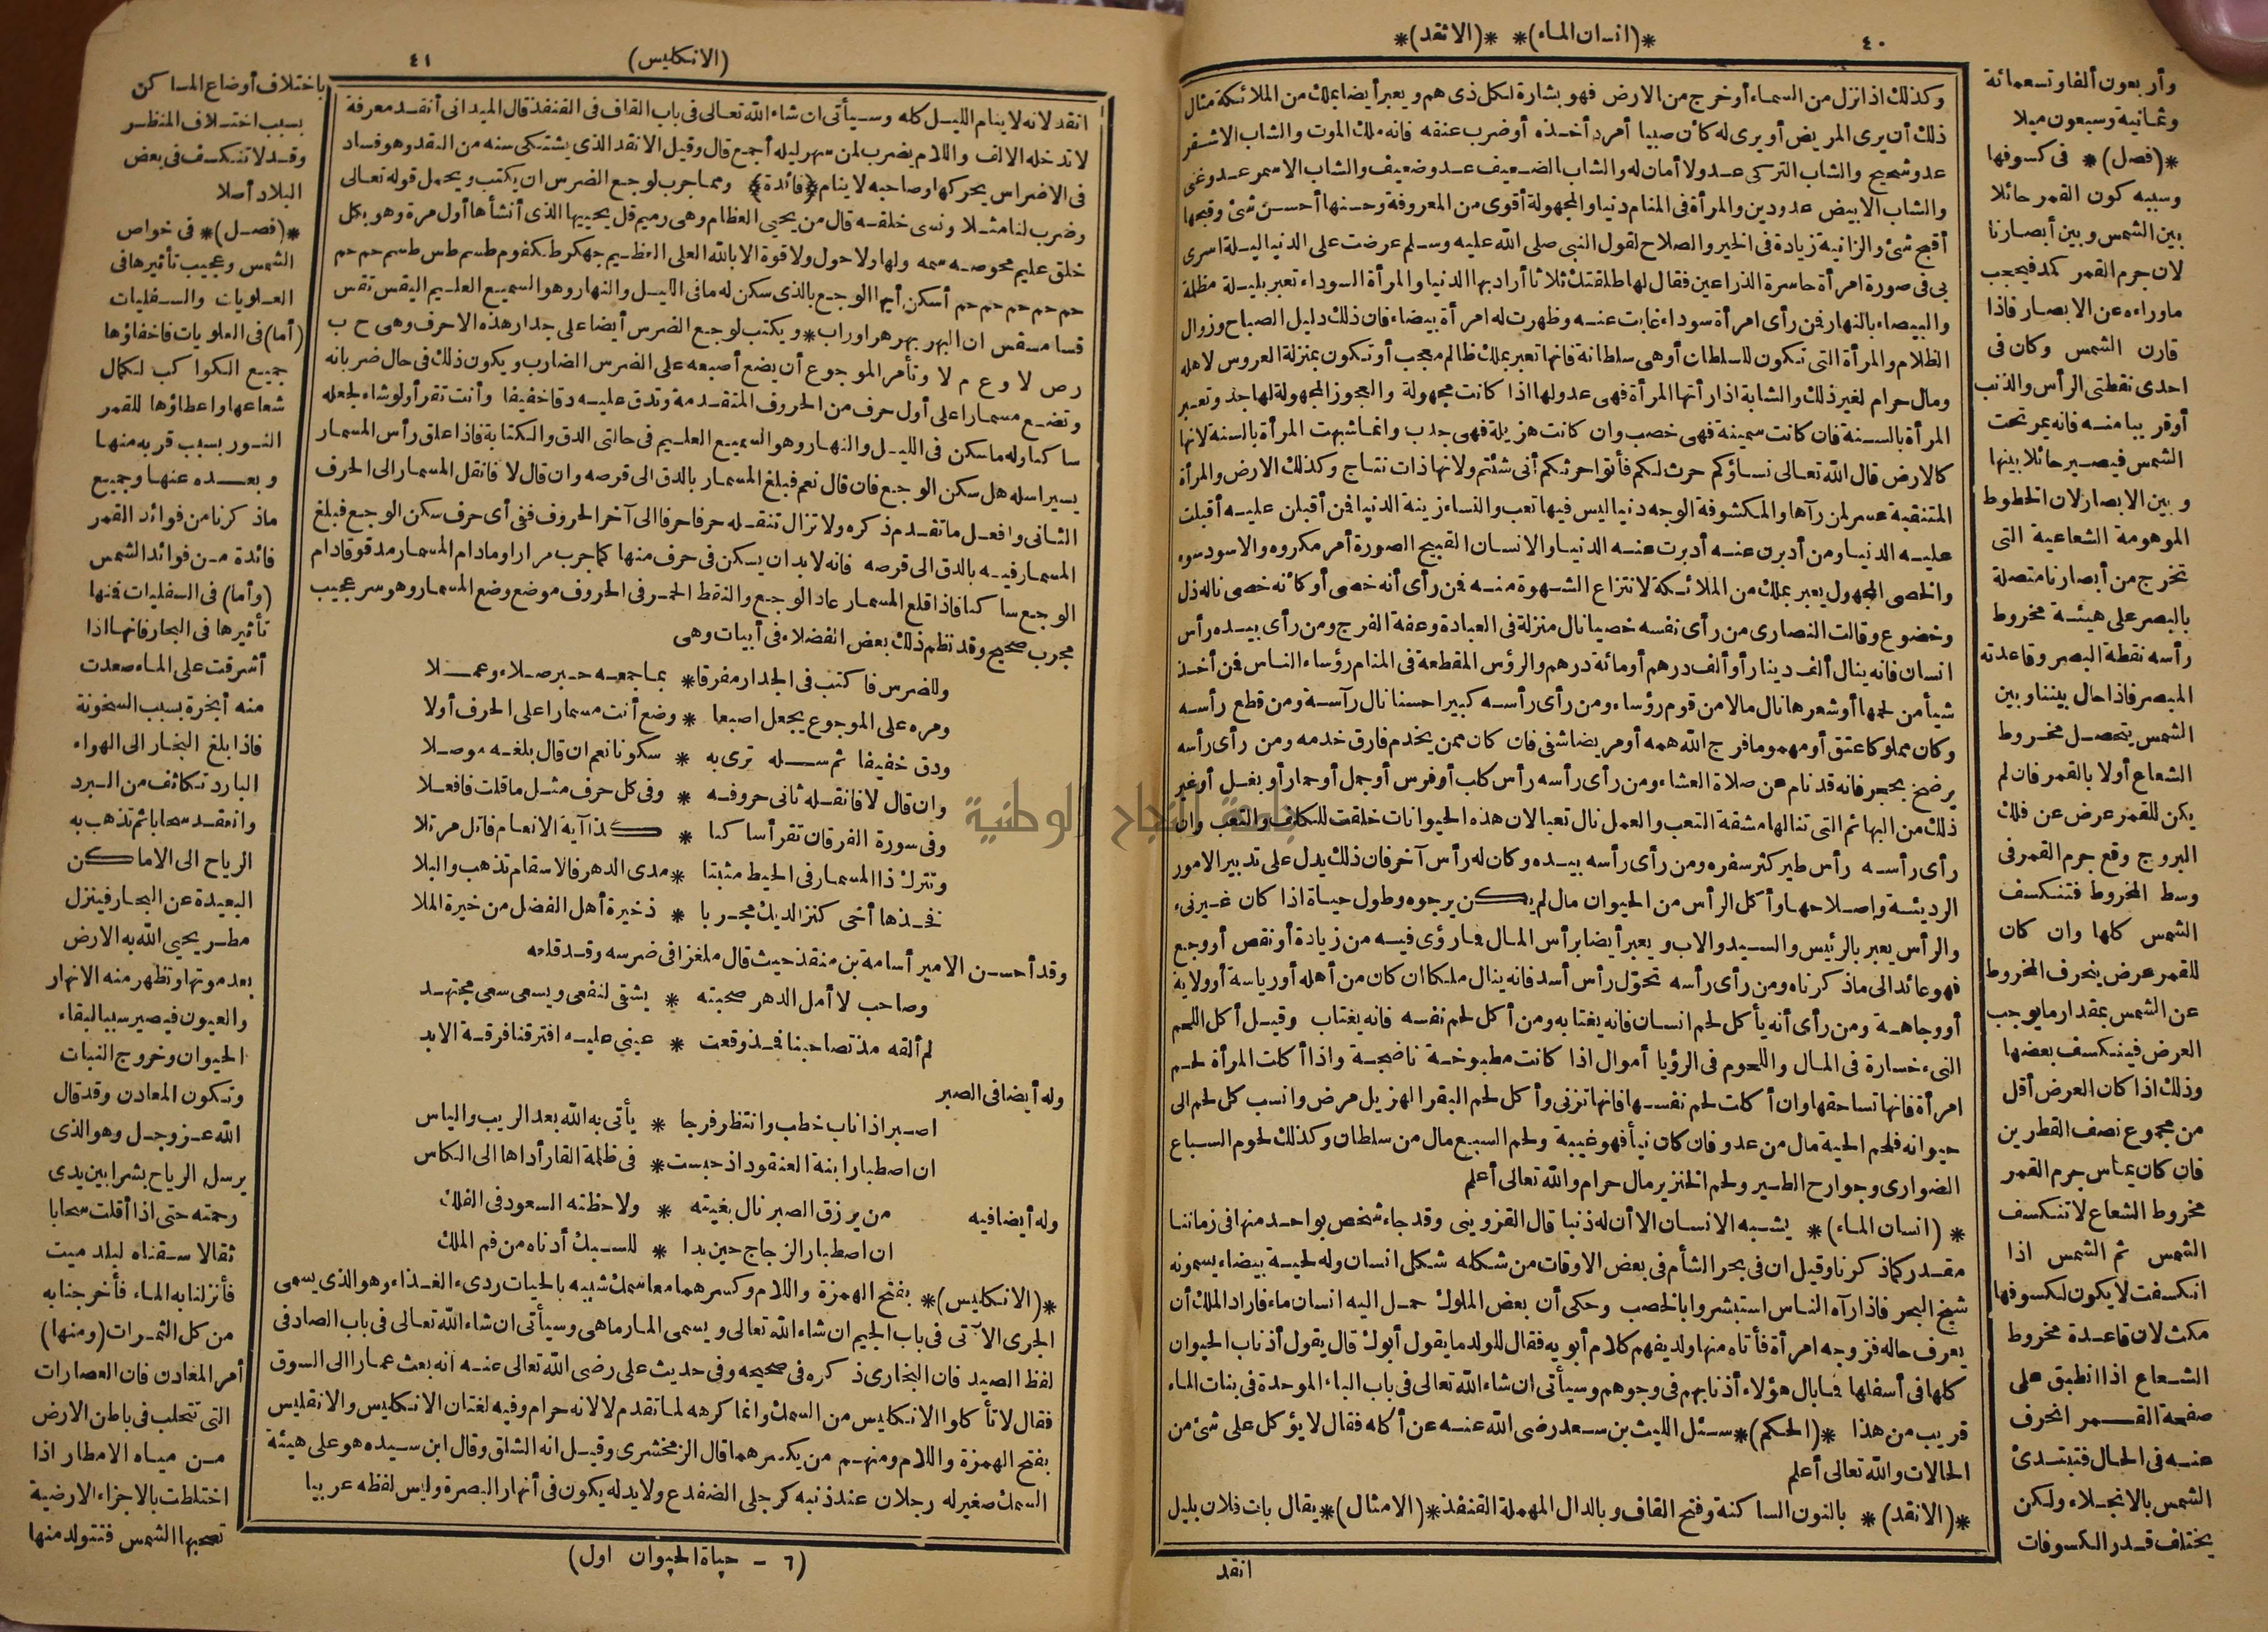 ٤٠
*(انسان الماء)* *(الانقد)*
وكذلك اذا نزل من السماء أو خرج من الارض فهو بشارة لكل ذى هم ويعبر أيضا بملك من الملائكة مثال
ذلك أن يرى المريض أو يرى له كأن صبيا أمرد أخذه أو ضرب عنقه فانه ملك الموت والشاب الاشقر
عدو شحيح والشاب التركى عدو لا أمان له والشاب الضعيف عدو ضعيف والشاب الاسمر عدو غنى
والشاب الابيض عدو دين والمرأة فى المنام دنيا والمجهولة أقوى من المعروفة وحسنها أحسن شئ وقبحها
أقبح شئ والزانية زيادة فى الخير والصلاح لقول النبى صلى الله عليه وسلم عرضت على الدنيا ليلة اسرى
بى فى صورة امرأة حاسرة الذراعين فقال لها طلقتك ثلاثا أراد بها الدنيا والمرأة السوداء تعبر بليلة مظلمة
والبيضاء بالنهار فمن رأى امرأة سوداء غابت عنه وظهرت له امرأة بيضاء فان ذلك دليل الصباح وزوال
الظلام والمرأة التى تكون للسلطان أو هى سلطانة فانها تعبر بملك ظالم معجب أو تكون بمنزلة العروس لاهله
ومال حرام لغير ذلك والشابة اذا رأتها المرأة فهى عدو لها اذا كانت مجهولة والعجوز المجهولة لها جد وتعبر
المرأة بالسنة فان كانت سمينة فهى خصب وان كانت هزيلة فهى جدب وانما شبهت المرأة بالسنة لانها
كالارض قال الله تعالى نساؤكم حرث لكم فأتوا حرثكم أنى شئتم ولانها ذات نتاج وكذلك الارض والمرأة
المتنقبة عسر لمن رآها والمكشوفة الوجه دنيا ليس فيها تعب والنساء زينة الدنيا فمن أقبلن عليه أقبلت
عليه الدنيا ومن أدبرن عنه أدبرت عنه الدنيا والانسان القبيح الصورة أمر مكروه والاسود سوء
والخصى المجهول يعبر بملك من الملائكة لانتزاع الشهوة منه فمن رأى أنه خصى أو كأنه خصى ناله ذل
وخضوع وقالت النصارى من رأى نفسه خصيا نال منزلة فى العبادة وعفة الفرج ومن رأى بيده رأس
انسان فانه ينال ألف دينار أو ألف درهم أو مائة درهم والرؤس المقطعة فى المنام رؤساء الناس فمن أخذ
شيأ من لحمها أو شعرها نال مالا من قوم رؤساء ومن رأى رأسه كبيرا حسنا نال رآسة ومن قطع رأسه
وكان مملوكا عتق أو مهموما فرج الله همه أو مريضا شفى فان كان ممن يخدم فارق خدمه ومن رأى رأسه
يرضخ بحجر فانه قد نام عن صلاة العشاء ومن رأى رأسه رأس كلب أو فرس أو جمل أو حمار أو بغل أو غير
ذلك من البهائم التى تنالها مشقة التعب والعمل نال تعبا لان هذه الحيوانات خلقت للكلف والتعب وان
رأى رأسه رأس طير كثر سفره ومن رأى رأسه بيده وكان له رأس آخر فان ذلك يدل على تدبير الامور
الرديئة واصلاحها وأكل الرأس من الحيوان مال لم يكن يرجوه وطول حياة اذا كان غير نىء
والرأس يعبر بالرئيس والسيد والاب ويعبر أيضا برأس المال فما رؤى فيه من زيادة أو نقص أو وجع
فهو عائد الى ما ذكرناه ومن رأى رأسه تحوّل رأس أسد فانه ينال ملكا ان كان من أهله أو رياسة أو ولاية
أو وجاهة ومن رأى أنه يأكل لحم انسان فانه يغتابه ومن أكل لحم نفسه فانه يغتاب وقيل أكل اللحم
النىء خسارة فى المال واللحوم فى الرؤيا أموال اذا كانت مطبوخة ناضجة واذا أكلت المرأة لحم
امرأة فانها تساحقها وان أكلت لحم نفسها فانها تزنى وأكل لحم البقر الهزيل مرض وانسب كل لحم الى
حيوانه فلحم الحية مال من عدو فان كان نيأ فهو غيبة ولحم السبع مال من سلطان وكذلك لحوم السباع
الضوارى وجوارح الطير ولحم الخنزير مال حرام والله تعالى أعلم
*(انسان الماء)* يشبه الانسان الا أن له ذنبا قال القزوينى وقد جاء شخص بواحد منها فى زماننا
مقدد كما ذكرنا وقيل ان فى بحر الشأم فى بعض الاوقات من شكله شكل انسان وله لحية بيضاء يسمونه
شيخ البحر فاذا رآه الناس استبشروا بالخصب وحكى أن بعض الملوك حمل اليه انسان ماء فاراد الملك أن
يعرف حاله فزوجه امرأة فأتاه منها ولد يفهم كلام أبويه فقال للولد ما يقول أبوك قال يقول أذناب الحيوان
كلها فى أسفلها فما بال هؤلاء أذنابهم فى وجوههم وسيأتى ان شاء الله تعالى فى باب الباء الموحدة فى بنات الماء
قريب من هذا *(الحكم)* سئل الليث بن سعد رضى الله عنه عن أكله فقال لا يؤكل على شئ من
الحالات والله تعالى أعلم
*(الانقد)* بالنون الساكنة وفتح القاف وبالدال المهملة القنفذ *(الامثال)* يقال بات فلان بليل
انقد
وأربعون ألفا وتسعمائة
وثمانية وسبعون ميلا
*(فصل)* فى كسوفها
وسببه كون القمر حائلا
بين الشمس وبين أبصارنا
لان جرم القمر كمد فيحجب
ما وراءه عن الابصار فاذا
قارن الشمس وكان فى
احدى نقطتى الرأس والذنب
أو قريبا منه فانه يمر تحت
الشمس فيصير حائلا بينها
وبين الابصار لان الخطوط
الموهومة الشعاعية التى
تخرج من أبصارنا متصلة
بالبصر على هيئة مخروط
رأسه نقطة البصر وقاعدته
المبصر فاذا حال بيننا وبين
الشمس يتحصل مخروط
الشعاع أولا بالقمر فان لم
يكن للقمر عرض عن فلك
البروج وقع جرم القمر فى
وسط المخروط فتنكسف
الشمس كلها وان كان
للقمر عرض ينحرف المخروط
عن الشمس بمقدار ما يوجب
العرض فينكسف بعضها
وذلك اذا كان العرض أقل
من مجموع نصف القطرين
فان كان يماس جرم القمر
مخروط الشعاع لا تنكسف
الشمس ثم الشمس اذا
انكسفت لا يكون لكسوفها
مكث لان قاعدة مخروط
الشعاع اذا انطبق على
صفحة القمر انحرف
عنه فى الحال فتبتدئ
الشمس بالانجلاء ولكن
يختلف قدر الكسوفات
(الانكليس)
٤١
انقد لانه لا ينام الليل كله وسيأتى ان شاء الله تعالى فى باب القاف فى القنفذ قال الميدانى أنقد معرفة
لا تدخله الالف واللام يضرب لمن سهر ليله أجمع قال وقيل الانقد الذى يشتكى سنه من النقد وهو فساد
فى الاضراس يحركها وصاحبه لا ينام (فائدة) ومما جرب لوجع الضرس ان يكتب ويحمل قوله تعالى
وضرب لنا مثلا ونسى خلقه قال من يحيى العظام وهى رميم قل يحييها الذى أنشأها أول مرة وهو بكل
خلق عليم محوصه سمه ولها ولا حول ولا قوة الا بالله العلى العظيم جهكرطكفوم طسم طس طسم حم حم
حم حم حم حم حم أسكن أيها الوجع بالذى سكن له ما فى الليل والنهار وهو السميع العليم اليقس تقس
قسا مسقس ان البهر بهر هراوراب * ويكتب لوجع الضرس أيضا على جدار هذه الاحرف وهى ح ب
ر ص لا و ع م لا وتأمر الموجوع أن يضع أصبعه على الضرس الضارب ويكون ذلك فى حال ضربانه
وتضع مسمارا على أول حرف من الحروف المتقدمة وتدق عليه دقا خفيفا وأنت تقرأ ولو شاء لجعله
ساكنا وله ما سكن فى الليل والنهار وهو السميع العليم فى حالتى الدق والكتابة فاذا علق رأس المسمار
يسيرا سله هل سكن الوجع فان قال نعم فبلغ المسمار بالدق الى قرصه وان قال لا فانقل المسمار الى الحرف
الثانى وافعل ما تقدم ذكره ولا تزال تنقله حرفا حرفا الى آخر الحروف ففى أى حرف سكن الوجع فبلغ
المسمار فيه بالدق الى قرصه فانه لا بد ان يسكن فى حرف منها كما جرب مرارا وما دام المسمار مدقوقا دام
الوجع ساكنا فاذا قلع المسمار عاد الوجع والنقط الحمر فى الحروف موضع وضع المسمار وهو سر عجيب
مجرب صحيح وقد نظم ذلك بعض الفضلاء فى أبيات وهى
وللضرس فاكتب فى الجدار مفرقا * بما جمعه حبر صلاء وعملا
ومره على الموجوع يجعل اصبعا * وضع أنت مسمارا على الحرف أولا
ودق خفيفا ثم سله ترى به * سكونا نعم ان قال بلغه موصلا
وان قال لا فانقله ثانى حروفه * وفى كل حرف مثل ما قلت فافعلا
وفى سورة الفرقان تقرأ ساكنا * كذا آية الانعام فاتل مرتلا
وتترك ذا المسمار فى الحيط مثبتا * مدى الدهر فالاسقام تذهب والبلا
فخذها أخى كنز الديك مجربا * ذخيرة أهل الفضل من خيرة الملا
وقد أحسن الامير أسامة بن منقذ حيث قال ملغزا فى ضرسه وقد قلعه
وصاحب لا أمل الدهر صحبته * يشقى لنفعى ويسعى سعى مجتهد
لم ألقه مذ تصاحبنا فمذ وقعت * عينى عليه افترقنا فرقة الابد
وله أيضا فى الصبر
اصبر اذا ناب خطب وانتظر فرجا * يأتى به الله بعد الريب والياس
ان اصطبار ابنة العنقود اذ حبست * فى ظلمة القار أداها الى الكاس
وله أيضا فيه من يرزق الصبر نال بغيته * ولاحظته السعود فى الفلك
ان اصطبار الزجاج حين بدا * للسبك أدناه من فم الملك
*(الانكليس)* بفتح الهمزة واللام وكسرهما معا سمك شبيه بالحيات ردىء الغذاء وهو الذى يسمى
الجرى الآتى فى باب الجيم ان شاء الله تعالى ويسمى المارماهى وسيأتى ان شاء الله تعالى فى باب الصاد فى
لفظ الصيد فان البخارى ذكره فى صحيحه وفى حديث على رضى الله تعالى عنه انه بعث عمارا الى السوق
فقال لا تأكلوا الانكليس من السمك وانما كرهه لما تقدم لا لانه حرام وفيه لغتان الانكليس والانقليس
بفتح الهمزة واللام ومنهم من يكسرهما قال الزمخشرى وقيل انه الشلق وقال ابن سيده هو على هيئة
السمك صغير له رجلان عند ذنبه كرجلى الضفدع ولا يد له يكون فى أنهار البصرة وليس لفظه عربيا
(٦ - حياة الحيوان اول)
باختلاف أوضاع المساكن
بسبب اختلاف المنظر
وقد لا تنكسف فى بعض
البلاد أصلا
*(فصل)* فى خواص
الشمس وعجيب تأثيرها فى
العلويات والسفليات
(أما) فى العلويات فاخفاؤها
جميع الكواكب لكمال
شعاعها واعطاؤها للقمر
النور بسبب قربه منها
وبعده عنها وجميع
ما ذكرنا من فوائد القمر
فائدة من فوائد الشمس
(وأما) فى السفليات فمنها
تأثيرها فى البحار فانها اذا
أشرقت على الماء صعدت
منه أبخرة بسبب السخونة
فاذا بلغ البخار الى الهواء
البارد تكاثف من البرد
وانعقد سحابا ثم تذهب به
الرياح الى الاماكن
البعيدة عن البحار فينزل
مطر يحيى الله به الارض
بعد موتها وتظهر منه الانهار
والعيون فيصير سببا لبقاء
الحيوان وخروج النبات
وتكون المعادن وقد قال
الله عز وجل وهو الذى
يرسل الرياح بشرا بين يدى
رحمته حتى اذا أقلت سحابا
ثقالا سقناه لبلد ميت
فأنزلنا به الماء فأخرجنا به
من كل الثمرات (ومنها)
أمر المعادن فان العصارات
التى تتحلب فى باطن الارض
من مياه الامطار اذا
اختلطت بالاجزاء الارضية
تصحبها الشمس فتتولد منها
جامعة النجاح الوطنية